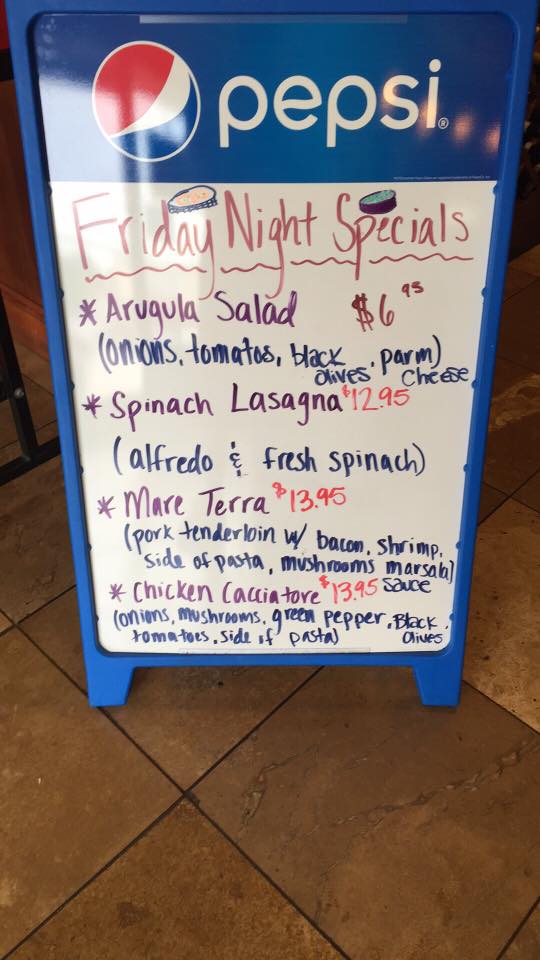 pepsi®
Friday Night Specials
* Arugula Salad $6 95
(onions, tomatos, black olives, parm) cheese
* Spinach Lasagna $12.95
(alfredo & fresh spinach)
* Mare Terra $13.95
(pork tenderloin w/ bacon, shrimp,
side of pasta, mushrooms marsala) sauce
* Chicken Cacciatore $13.95
(onions, mushrooms, green pepper, Black olives,
tomatoes, side of pasta)